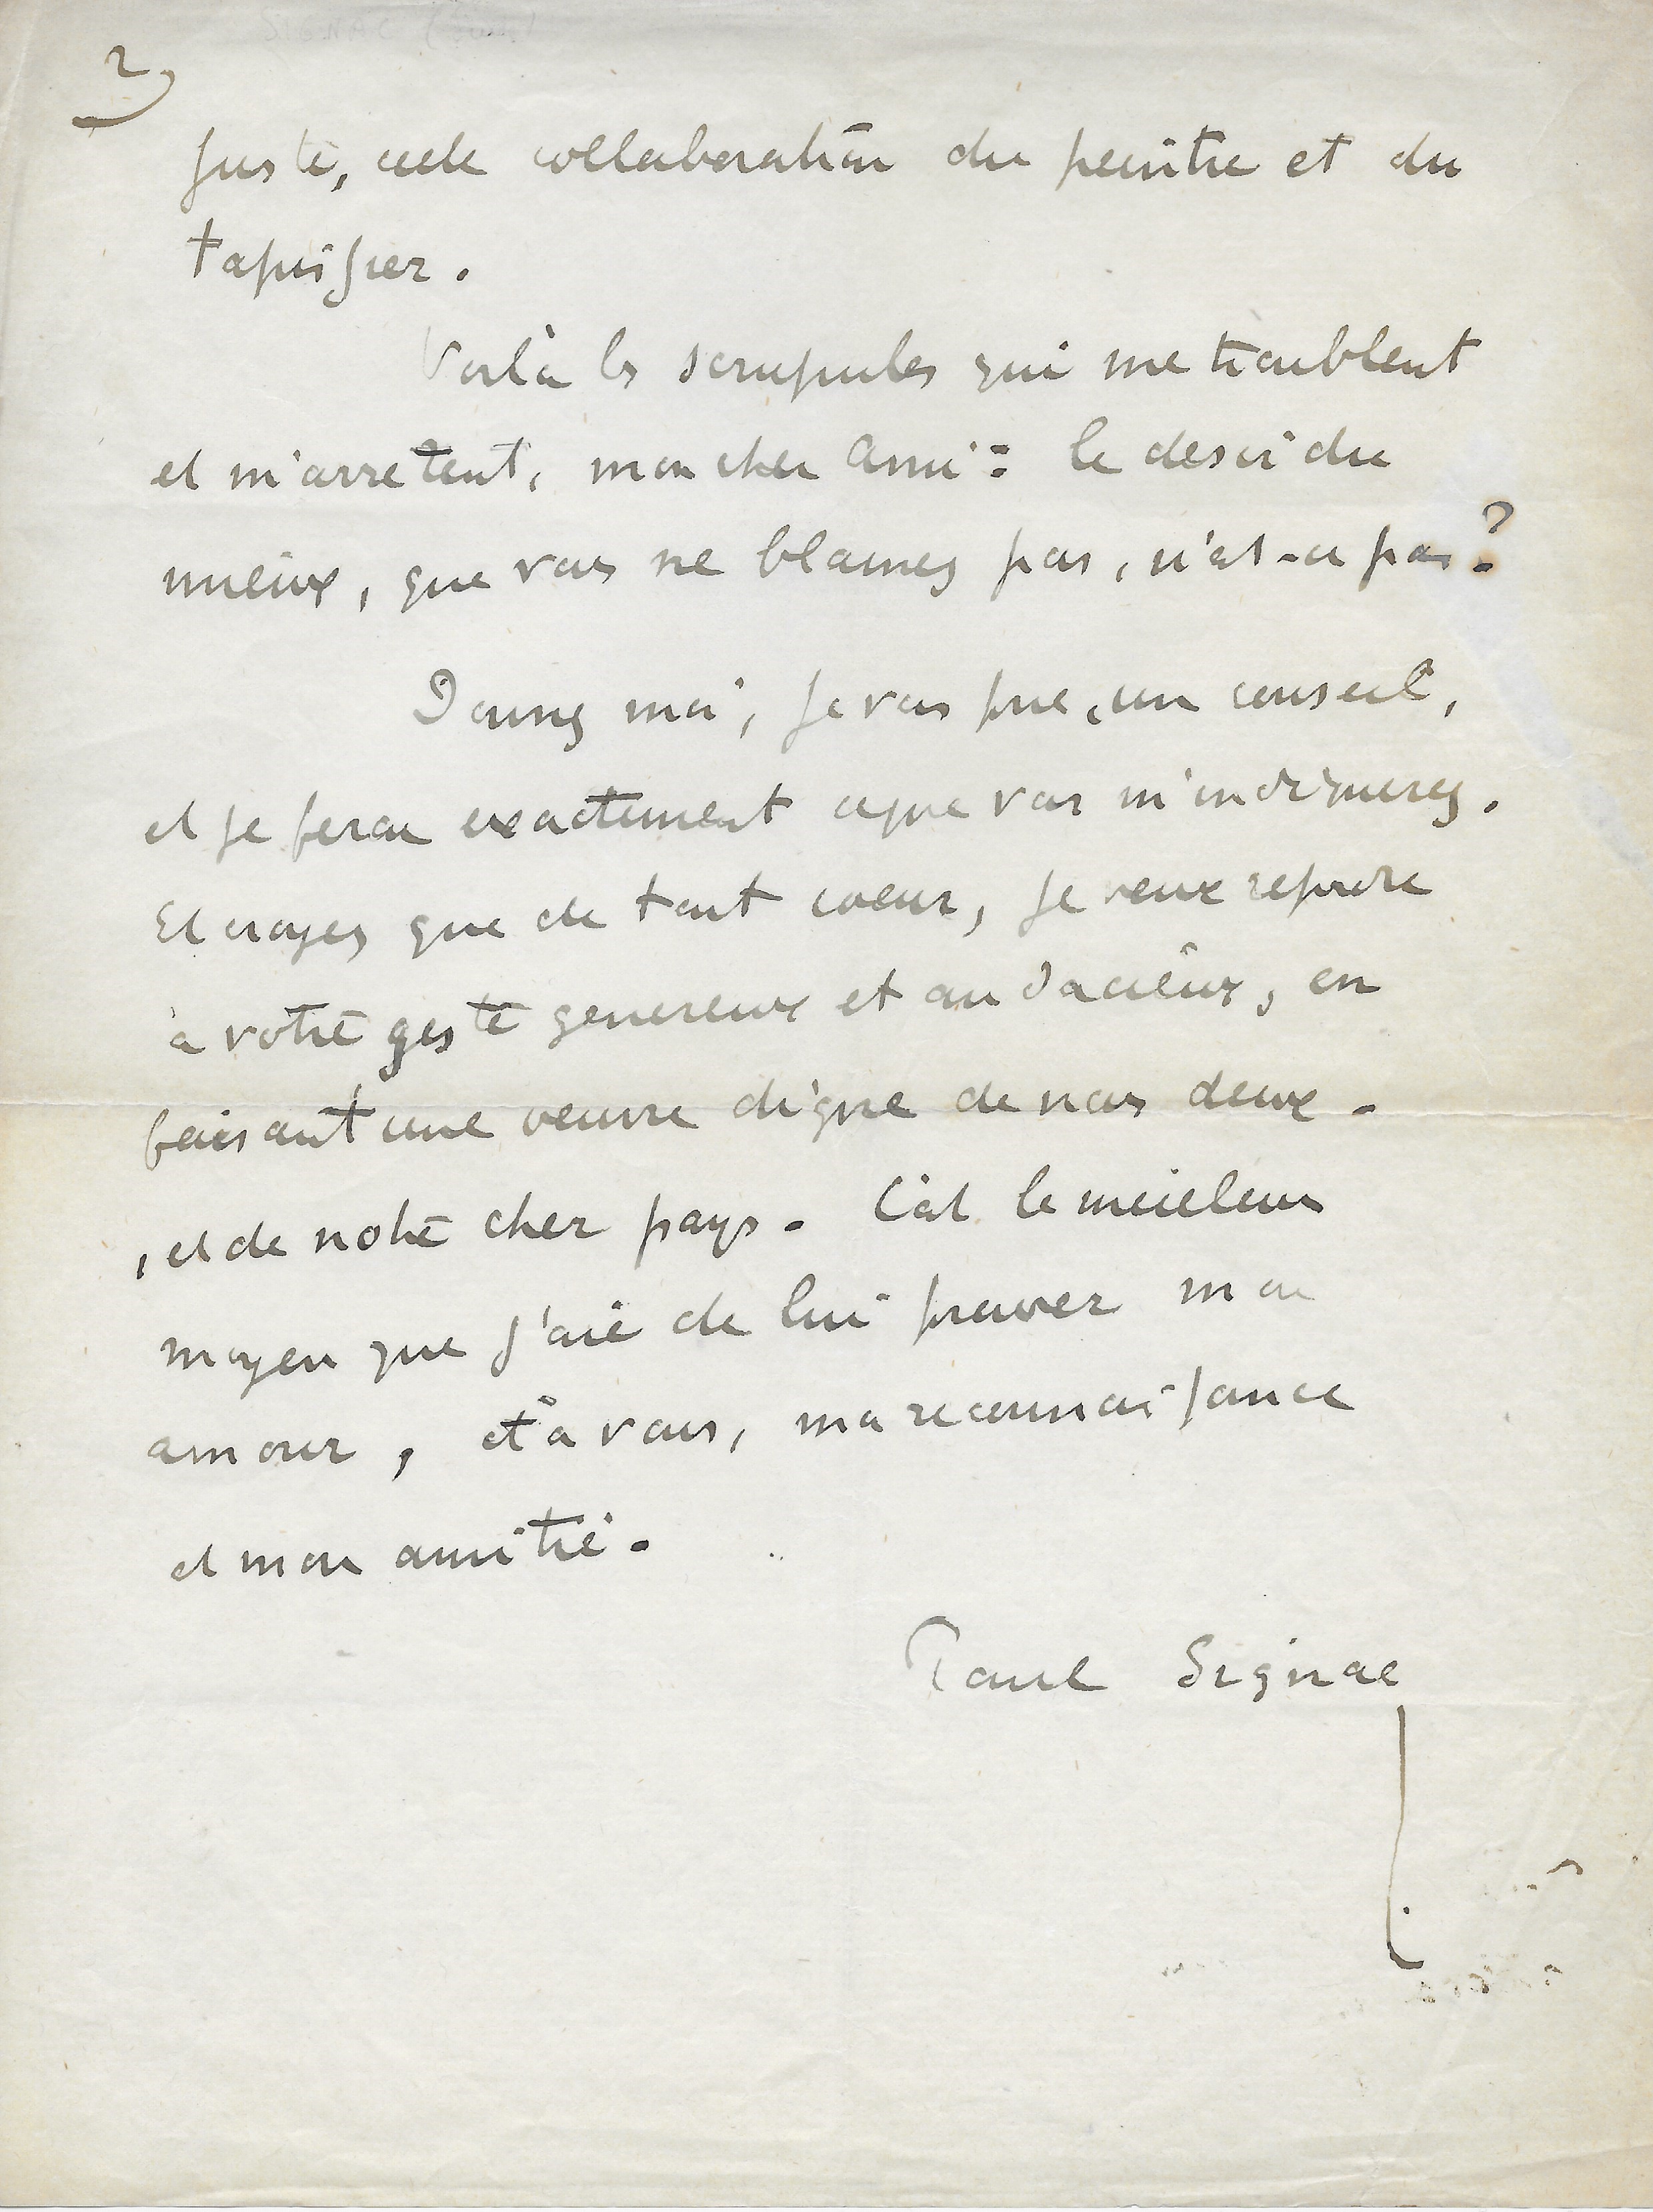 2)
juste, cette collaboration du peintre et du
tapissier.
Voilà les scrupules qui me troublent
et m'arretent, mon cher ami : le desir du
mieux, que vous ne blamez pas, n'est-ce pas ?
Donnez moi, je vous prie, un conseil,
et je ferai exactement ce que vous m'indiquerez.
Et croyez que de tout coeur, je veux repondre
à votre geste genereux et audacieux, en
faisant une oeuvre digne de nous deux.
, et de notre cher pays. C'est le meilleur
moyen que j'aie de lui prouver mon
amour, et à vous, ma reconnaissance
et mon amitié.
Paul Signac